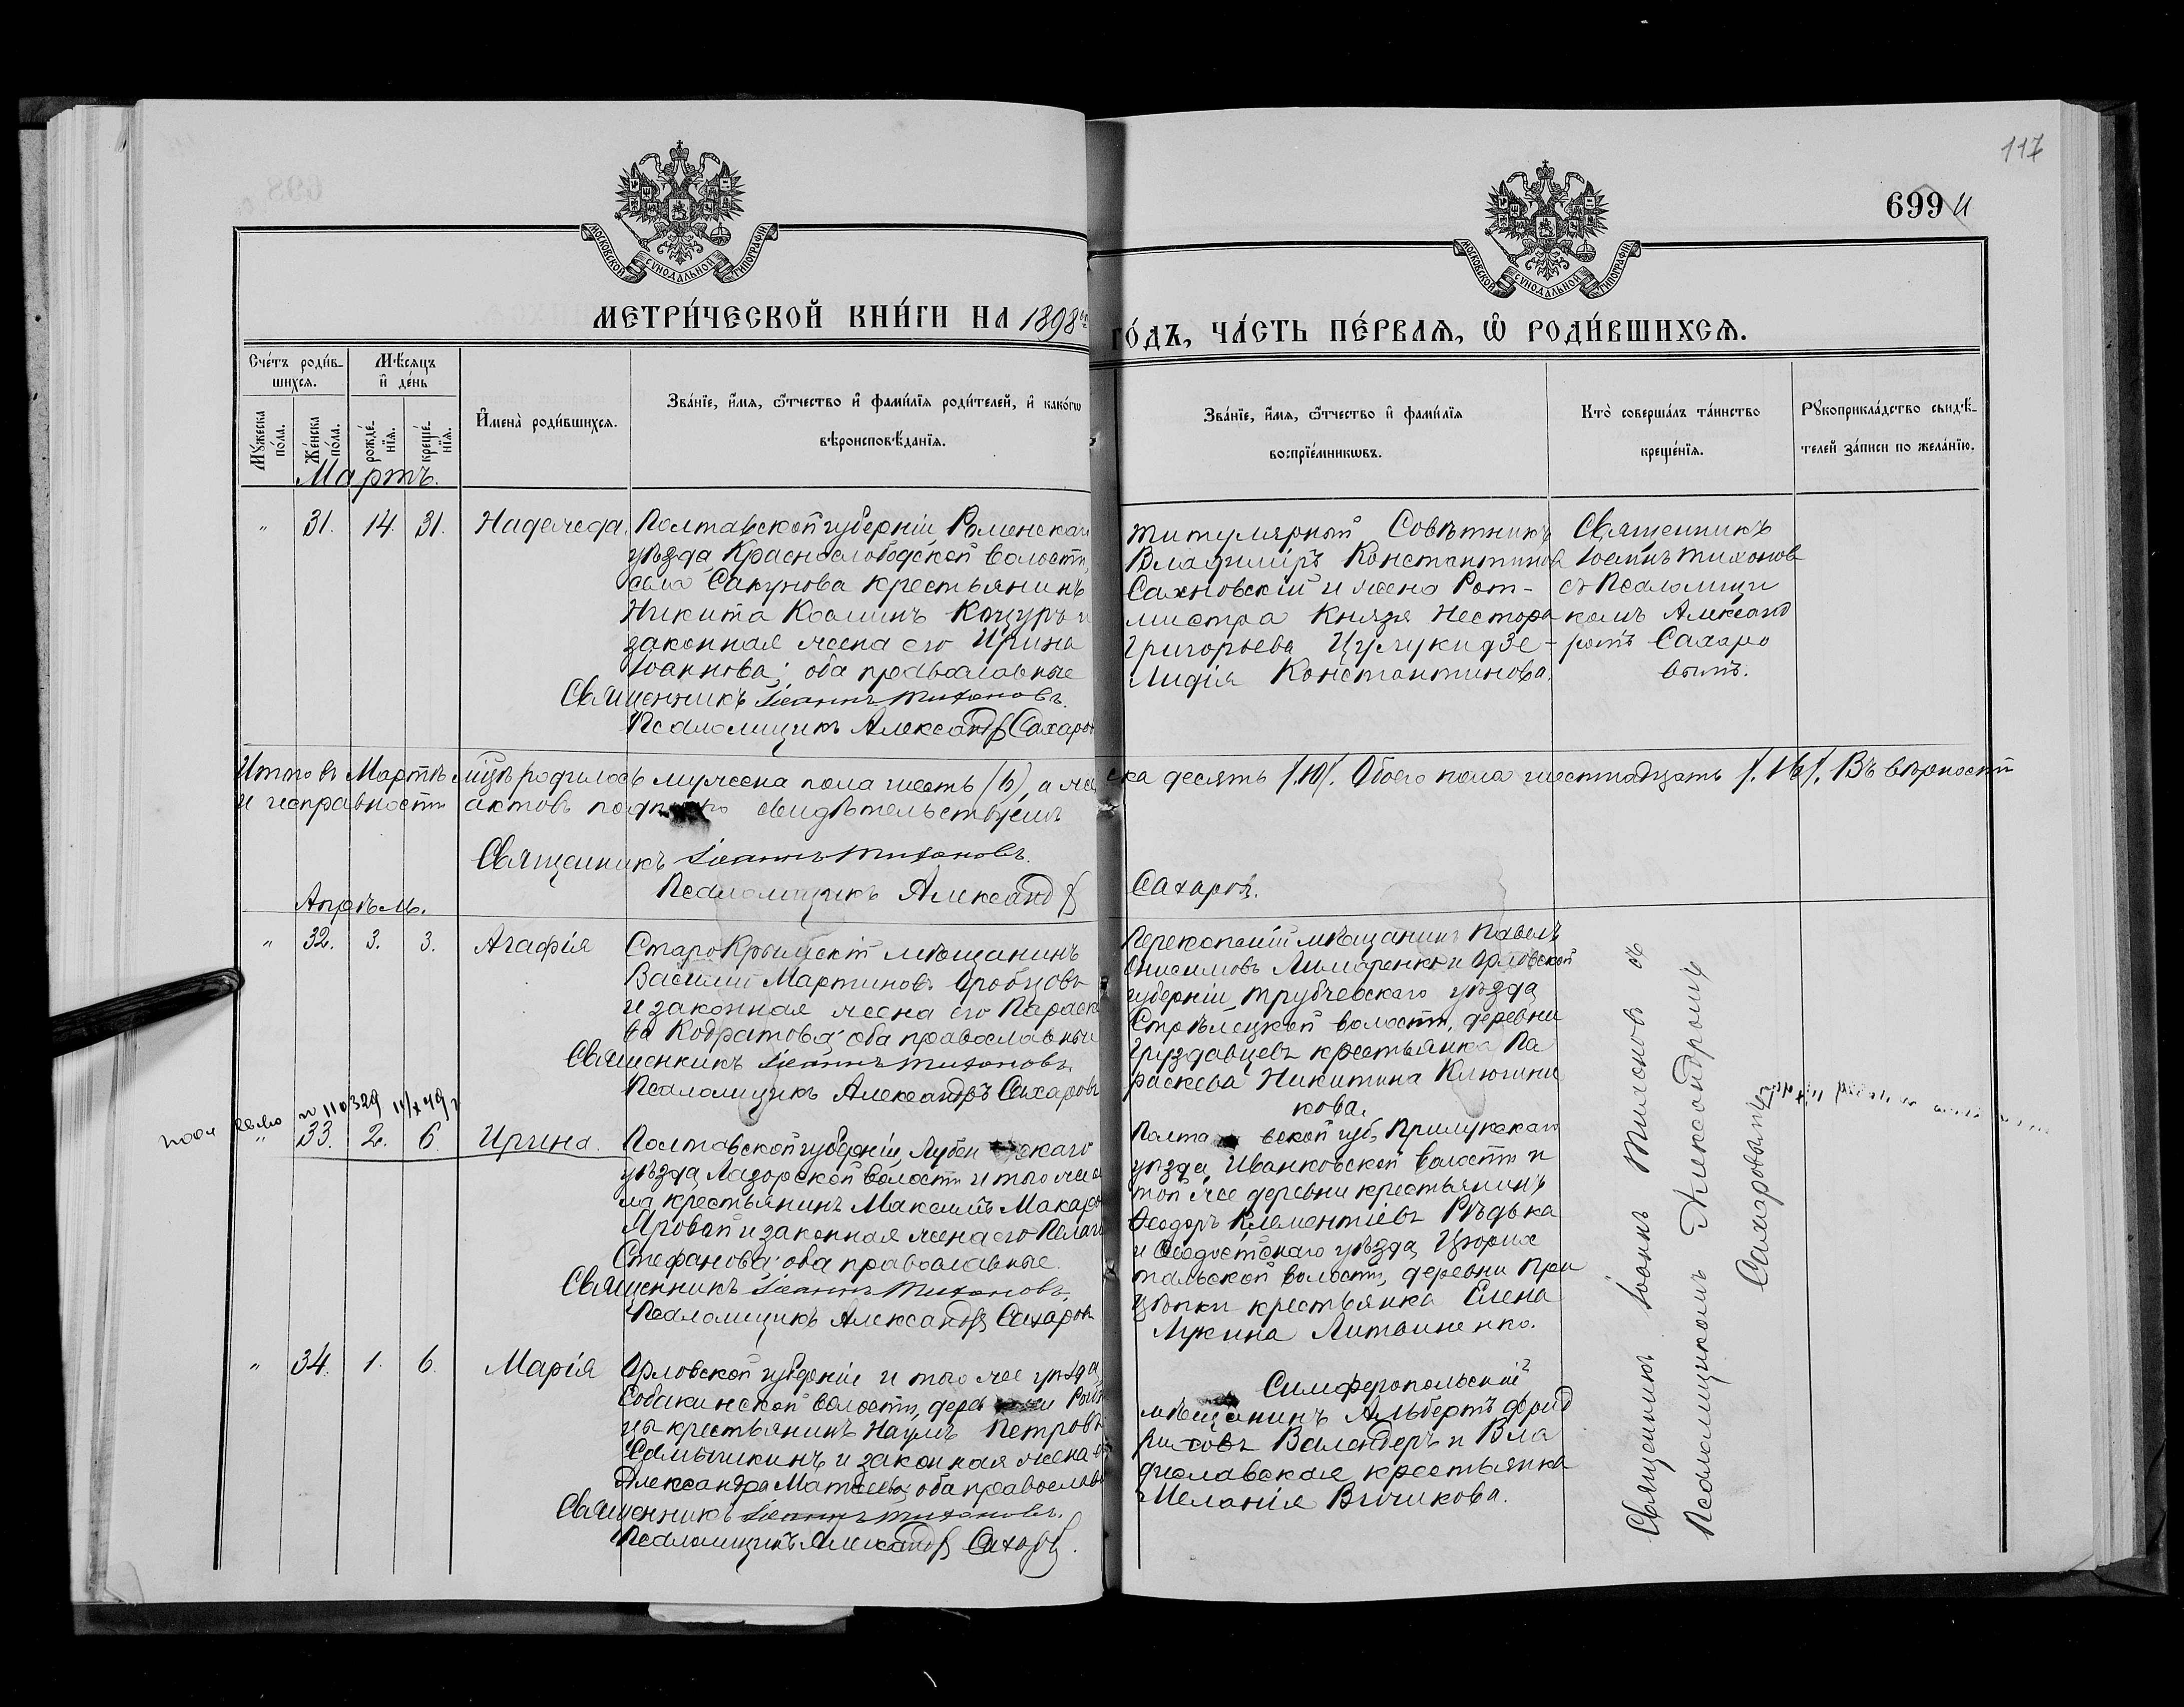 117
699
МОСКОВСКОЙ СѴНОДАЛЬНОЙ ТИПОГРАФІИ
МОСКОВСКОЙ СѴНОДАЛЬНОЙ ТИПОГРАФІИ
МЕТРИ́ЧЕСКОЙ КНИ́ГИ НА 1898
ГО́ДЪ, ЧА́СТЬ ПЕ́РВАѦ, Ѡ РОДИ́ВШИХСѦ.
Сче́тъ роди́в-
шихсѧ.
Мѣ́сѧцъ
и҆ де́нь
Мꙋ́жеска
по́ла.
Же́нска
по́ла.
рожде́-
нїѧ.
креще́-
нїѧ.
И҆мена̀ роди́вшихсѧ.
Зва́нїе, и҆́мѧ, ѻ҆́тчество и҆ фами́лїѧ роди́телей, и҆ како́гѡ
вѣроисповѣ́данїѧ.
Зва́нїе, и҆́мѧ, ѻ҆́тчество и҆ фами́лїѧ
воспрїе́мникѡвъ.
Кто̀ соверша́лъ та́инство
креще́нїѧ.
Рꙋкоприкла́дство свидѣ́-
телей за́писи по жела́нїю.
Мартъ.
" 31. 14. 31. Надежда.
Полтавской губерніи Роменскаго
уѣзда Краснослободской волости,
села Сакунова крестьянинъ
Никита Косминъ Коцуръ и
законная жена его Ирина
Іоаннова; оба православные
Священникъ Іоаннъ Тихоновъ.
Псаломщикъ Александръ Сахаровъ
Титулярной Совѣтникъ
Владиміръ Константиновъ
Сахновскій и жена Рот-
мистра Князя Нестора
Григорьева Цулукидзе-
Лидія Константинова.
Священникъ
Іоаннъ Тихоновъ
съ Псаломщи
комъ Александ
ромъ Сахаро
вымъ.
Итого въ Мартѣ мцѣ родилось мужеска пола шесть (6), а женска десять /10/. Обоего пола шестнадцать /16/. Въ вѣрности
и исправности актовъ свидѣтельствуемъ
Священникъ Іоаннъ Тихоновъ.
Псаломщикъ Александръ Сахаровъ.
Апрѣль.
" 32. 3. 3. Агафія
СтароКрымскій мѣщанинъ
Василій Мартиновъ
и законная жена его Параске
ва Кодратова; оба православные
Священникъ Іоаннъ Тихоновъ.
Псаломщикъ Александръ Сахаровъ
Перекопскій мѣщанинъ Павелъ
Онисимовъ Лимаренко и Орловской
губерніи Трубчевскаго уѣзда
Стрѣлецкой волости, деревни
Груздавцевъ крестьянка Па
раскева Никитина Клюгини
кова.
№ 110329
" 33. 2. 6. Ирина.
Полтавской губерніи, Лубенскаго
уѣзда Лазорской волости и того же се
ла крестьянинъ Максимъ Макаровъ
Яровой и законная жена его Пелагія
Стефанова; оба православные.
Священникъ Іоаннъ Тихоновъ.
Псаломщикъ Александръ Сахаровъ
Полтавской губ. Прилукскаго
уѣзда, Иванковской волости и
той же деревни крестьянинъ
Ѳеодоръ Клементіевъ Рѣдька
и Ѳеодосійскаго уѣзда, Цюрих
тальской волости, деревни При
крестьянка Елена
Лукина Литвиненко.
" 34. 1. 6. Марія
Орловской губерніи и того же уѣзда,
Собакинской волости,
цы крестьянинъ Наумъ Петровъ
Самышкинъ и законная жена его
Александра Матѳеева; оба православные
Священникъ Іоаннъ Тихоновъ.
Псаломщикъ Александръ Сахаровъ.
Симферопольскій
мѣщанинъ Альбертъ Фрид
риховъ Валендеръ и Вла
диславская крестьянка
Меланія Вычикова.
Священникъ Іоаннъ Тихоновъ съ
Псаломщикомъ Александромъ
Сахаровымъ